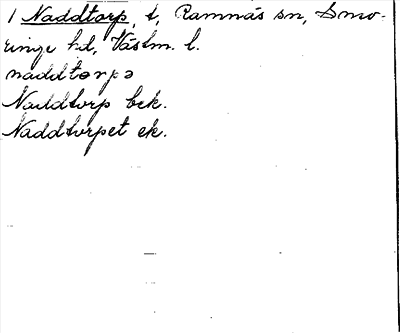 1 Naddtorp, t, Ramnäs sn, Snev-
ringe hd, Västm. l.
naddtərpə
Naddtorp bek.
Naddtorpet ek.